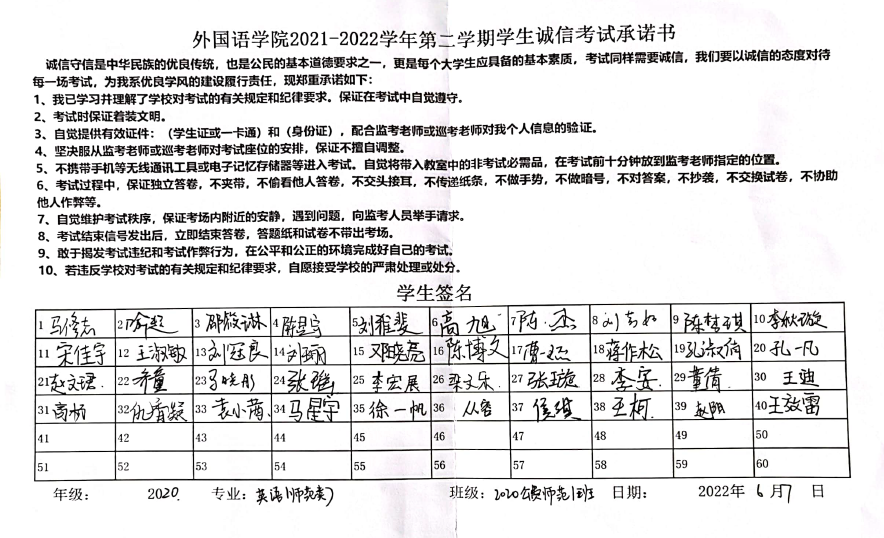 外国语学院2021-2022学年第二学期学生诚信考试承诺书
诚信守信是中华民族的优良传统，也是公民的基本道德要求之一，更是每个大学生应具备的基本素质，考试同样需要诚信，我们要以诚信的态度对待
每一场考试，为我系优良学风的建设履行责任，现郑重承诺如下：
1、我已学习并理解了学校对考试的有关规定和纪律要求。保证在考试中自觉遵守。
2、考试时保证着装文明。
3、自觉提供有效证件：（学生证或一卡通）和（身份证），配合监考老师或巡考老师对我个人信息的验证。
4、坚决服从监考老师或巡考老师对考试座位的安排，保证不擅自调整。
5、不携带手机等无线通讯工具或电子记忆存储器等进入考试。自觉将带入教室中的非考试必需品，在考试前十分钟放到监考老师指定的位置。
6、考试过程中，保证独立答卷，不夹带，不偷看他人答卷，不交头接耳，不传递纸条，不做手势，不做暗号，不对答案，不抄袭，不交换试卷，不协助
他人作弊等。
7、自觉维护考试秩序，保证考场内附近的安静，遇到问题，向监考人员举手请求。
8、考试结束信号发出后，立即结束答卷，答题纸和试卷不带出考场。
9、敢于揭发考试违纪和考试作弊行为，在公平和公正的环境完成好自己的考试。
10、若违反学校对考试的有关规定和纪律要求，自愿接受学校的严肃处理或处分。
学生签名
1 马修志 2 3 邵筱琳 4 陈星宇 5 刘雅斐 6 高旭 7 陈杰 8 9 陈梦琪 10 李秋璇
11 宋佳宇 12 王淑敏 13 刘冠良 14 刘丽 15 邓晓亮 16 陈博文 17 曹杰 18 蒋作松 19 孔淑倩 20 孔一凡
21 赵文珺 22 23 马晓彤 24 张瑶 25 李宏展 26 栾文乐 27 张珏旋 28 李安 29 董倩 30 王迪
31 高杨 32 33 袁小茜 34 马星宇 35 徐一帆 36 从容 37 侯琪 38 王柯 39 赵阳 40 王效雷
41 42 43 44 45 46 47 48 49 50
51 52 53 54 55 56 57 58 59 60
年级： 2020. 专业：英语（师范类） 班级：2020公费师范1班 日期： 2022年 6月7 日